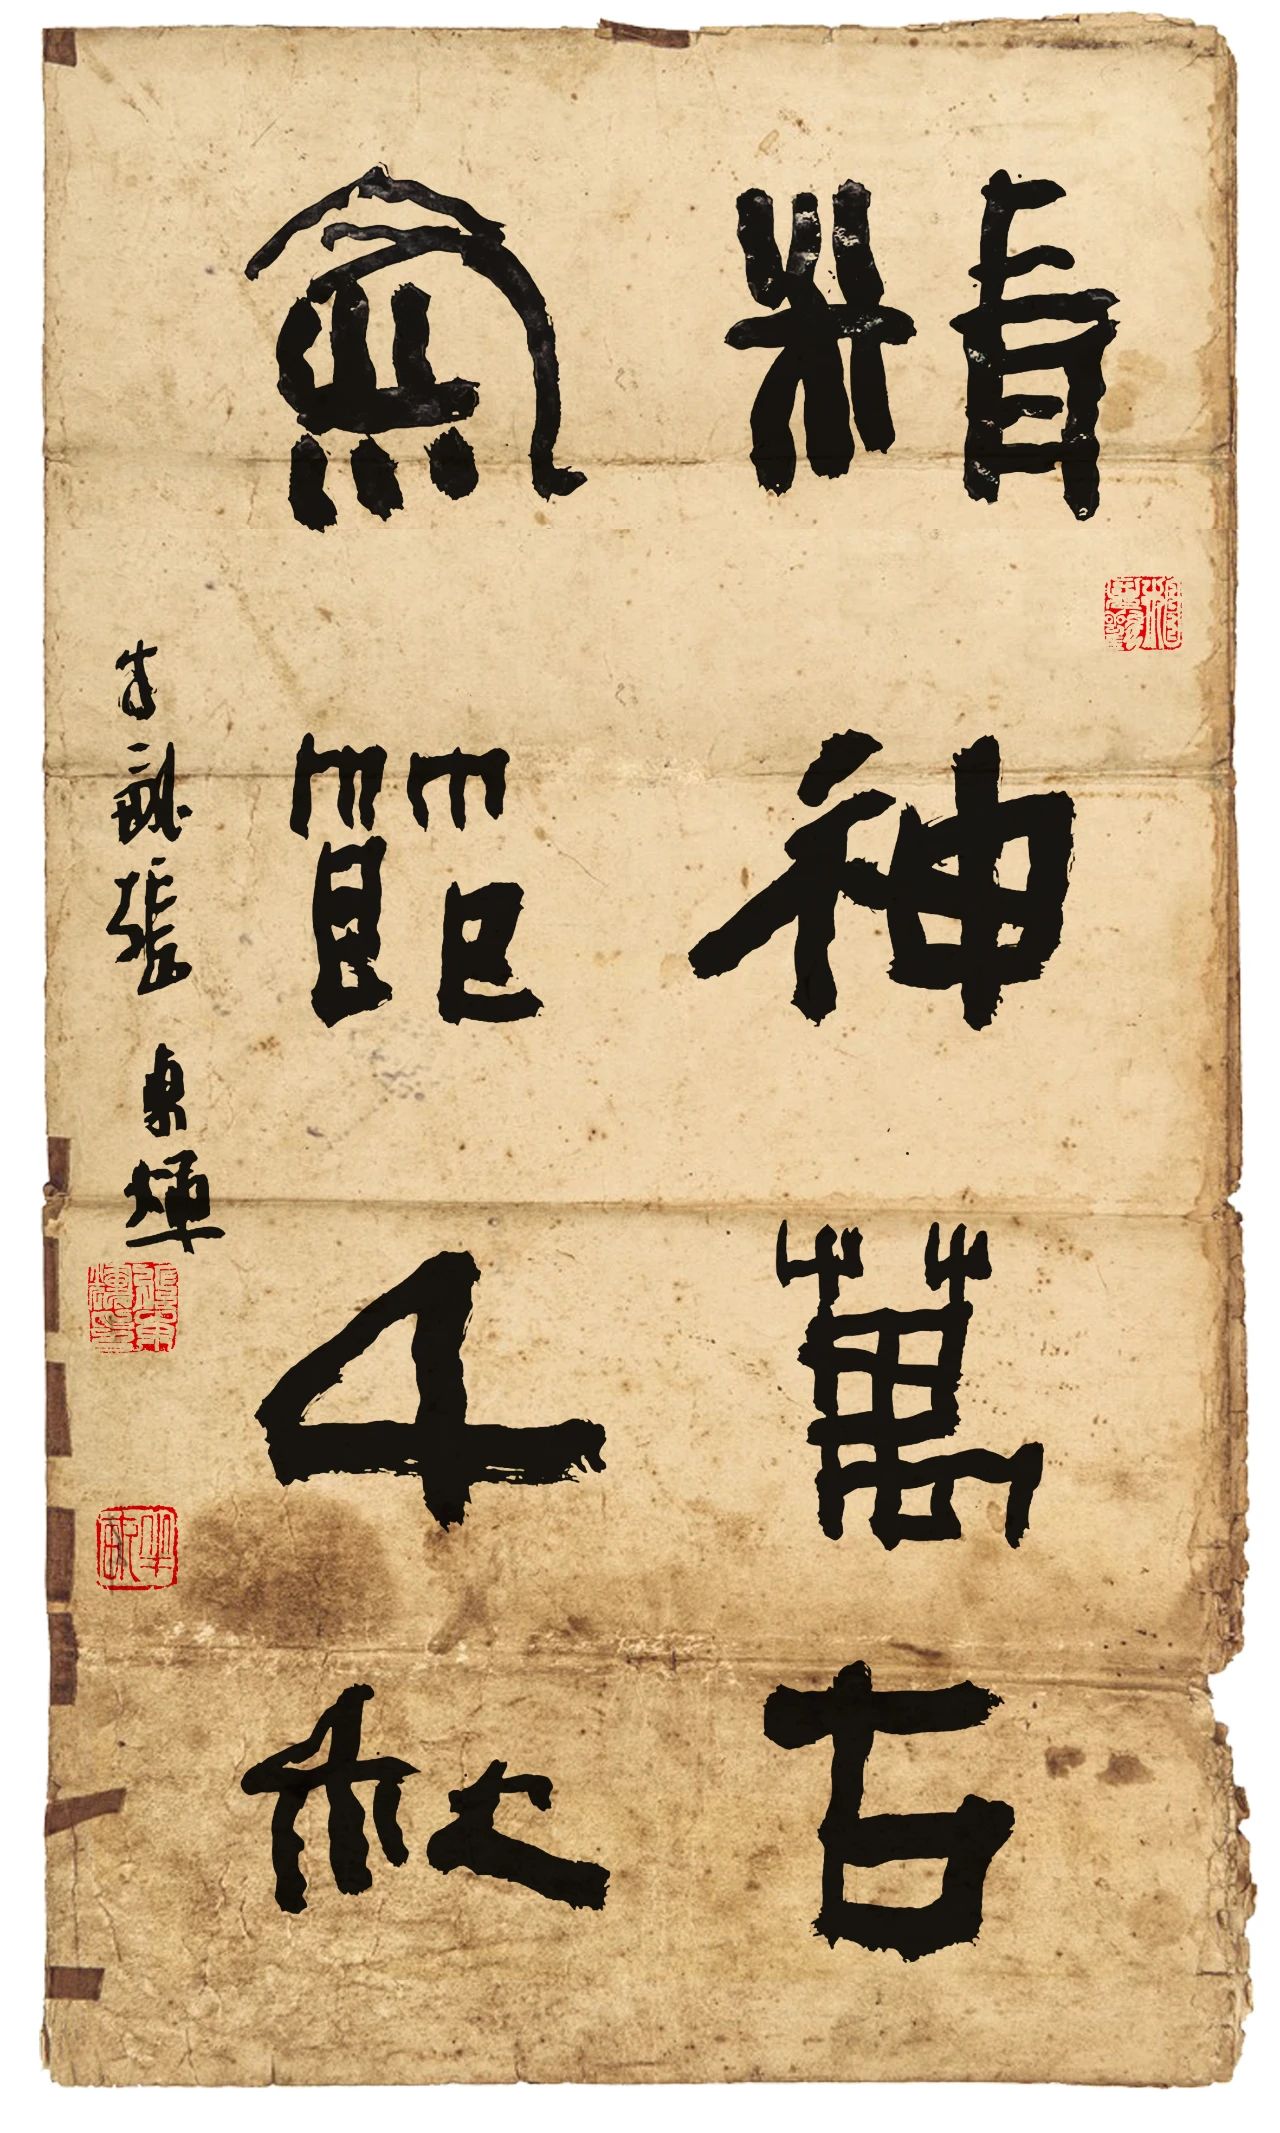 精神萬古
氣節千秋
半瓶張東輝